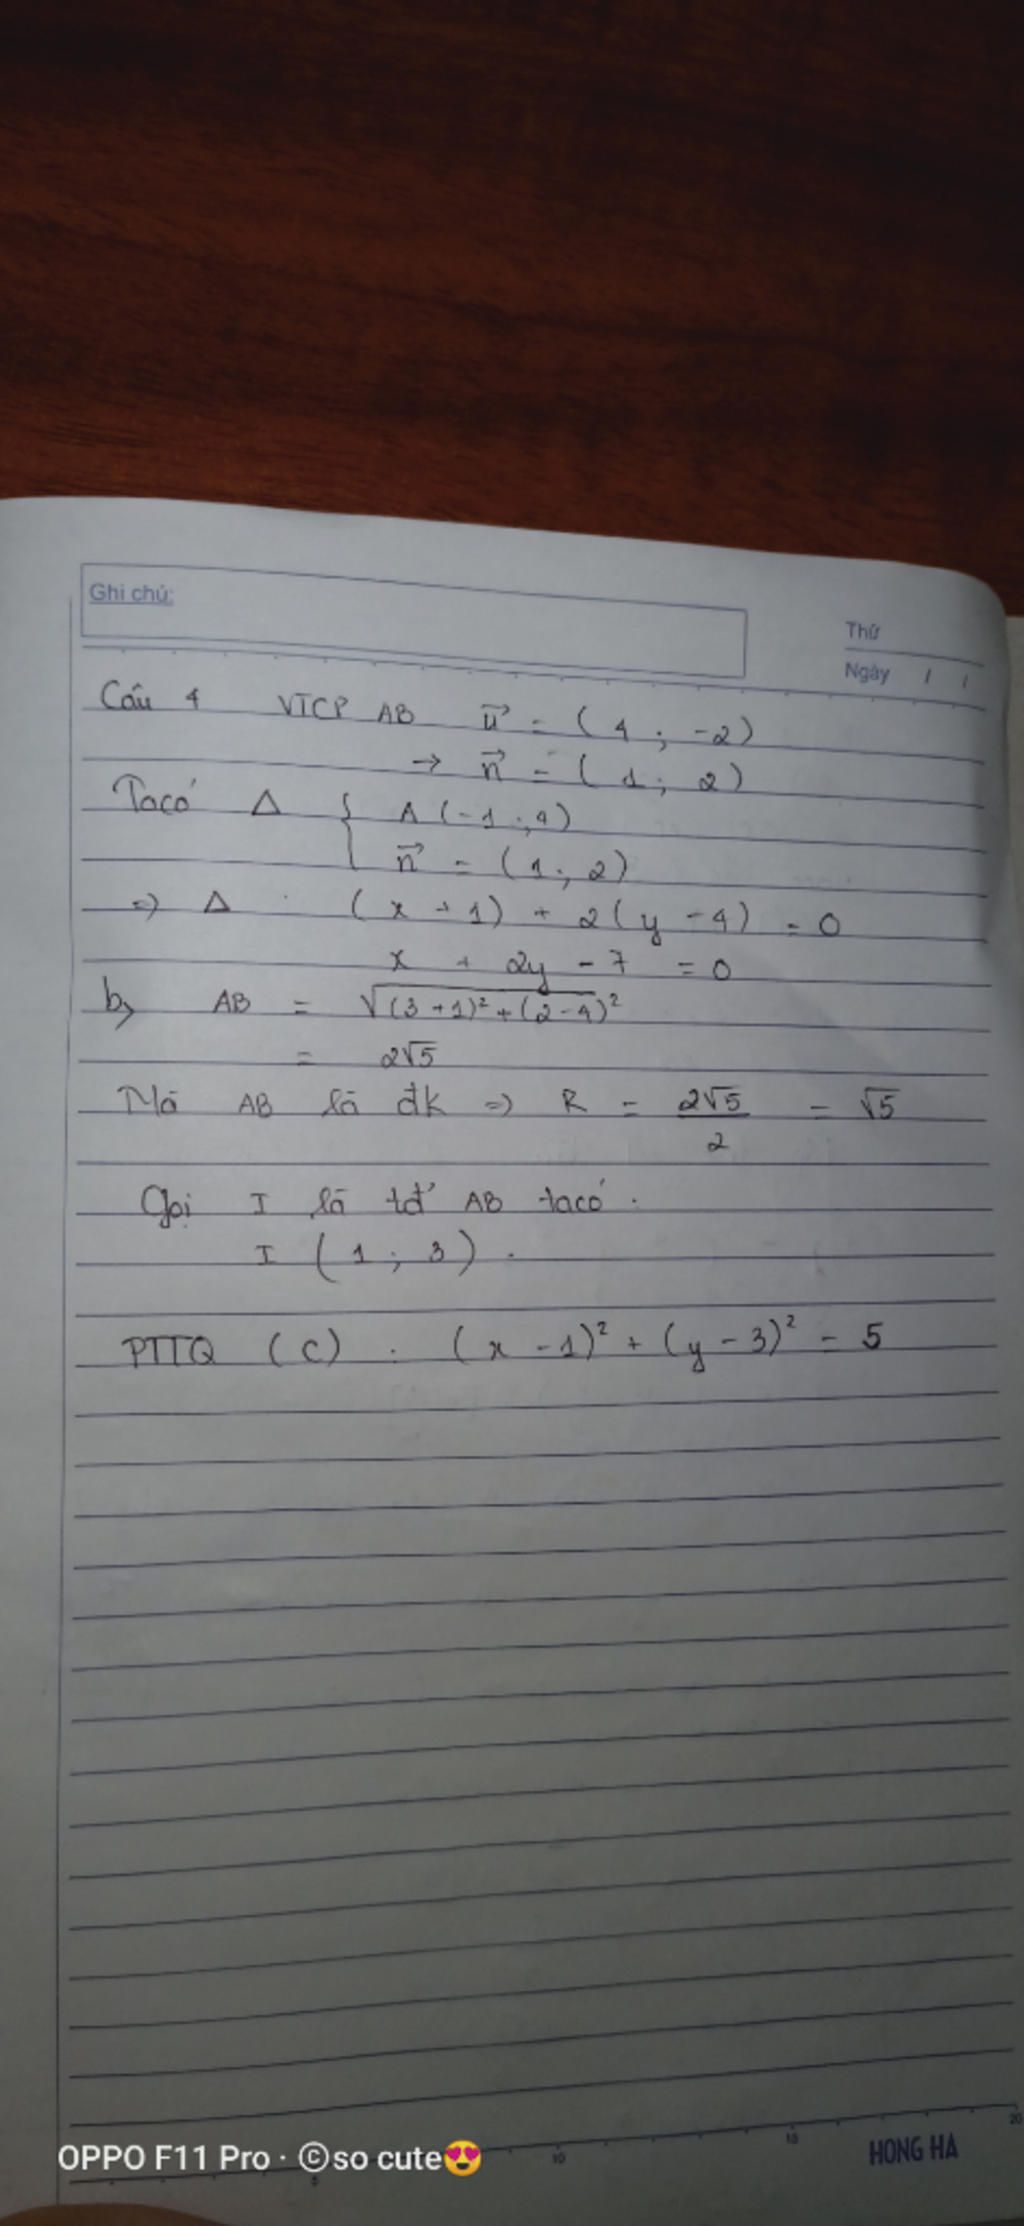 Ghi chú:
Thứ
Ngày / /
Câu 4 VTCP AB u⃗ = ( 4 ; -2 )
→ n⃗ = ( 1 ; 2 )
Ta có Δ { A ( -1 ; 4 )
n⃗ = ( 1 ; 2 )
=> Δ : ( x + 1 ) + 2 ( y - 4 ) = 0
x + 2y - 7 = 0
b, AB = √(3 + 1)² + (2 - 4)²
= 2√5
Mà AB là đk => R = 2√5 / 2 = √5
Gọi I là tđ AB ta có :
I ( 1 ; 3 ) .
PTTQ ( C ) : ( x - 1 )² + ( y - 3 )² = 5
OPPO F11 Pro · ©so cute😍
5 10 15 20
HONG HA